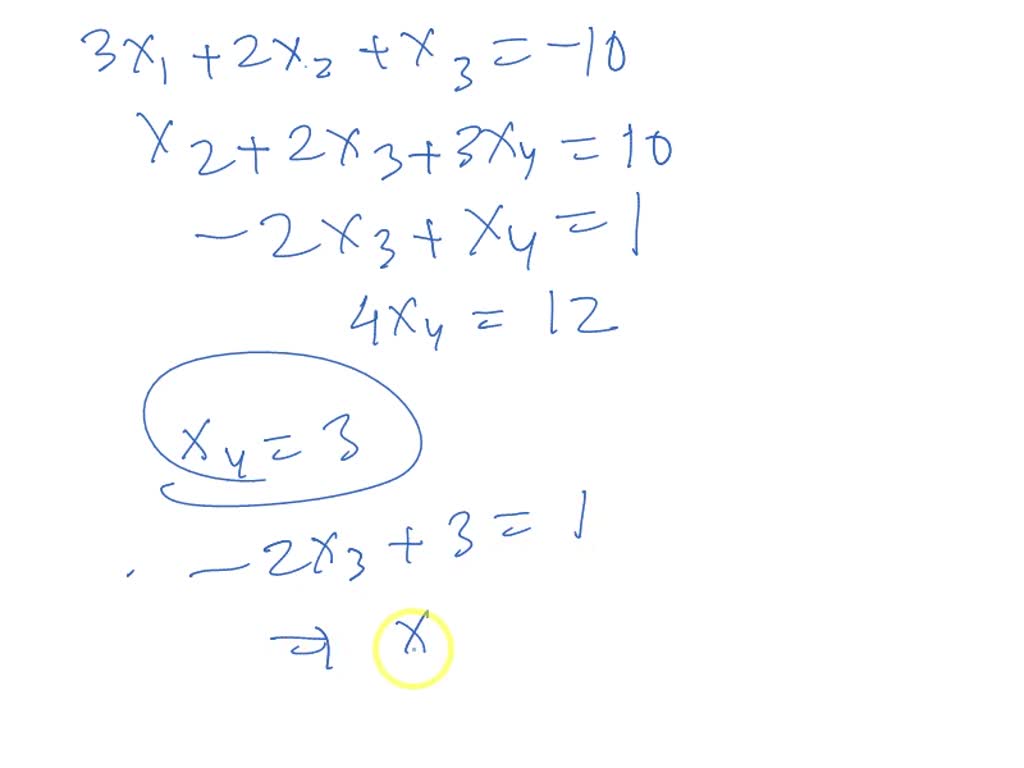 3x₁ + 2x₂ + x₃ = -10
x₂ + 2x₃ + 3x₄ = 10
-2x₃ + x₄ = 1
4x₄ = 12
x₄ = 3
-2x₃ + 3 = 1
⇒ x